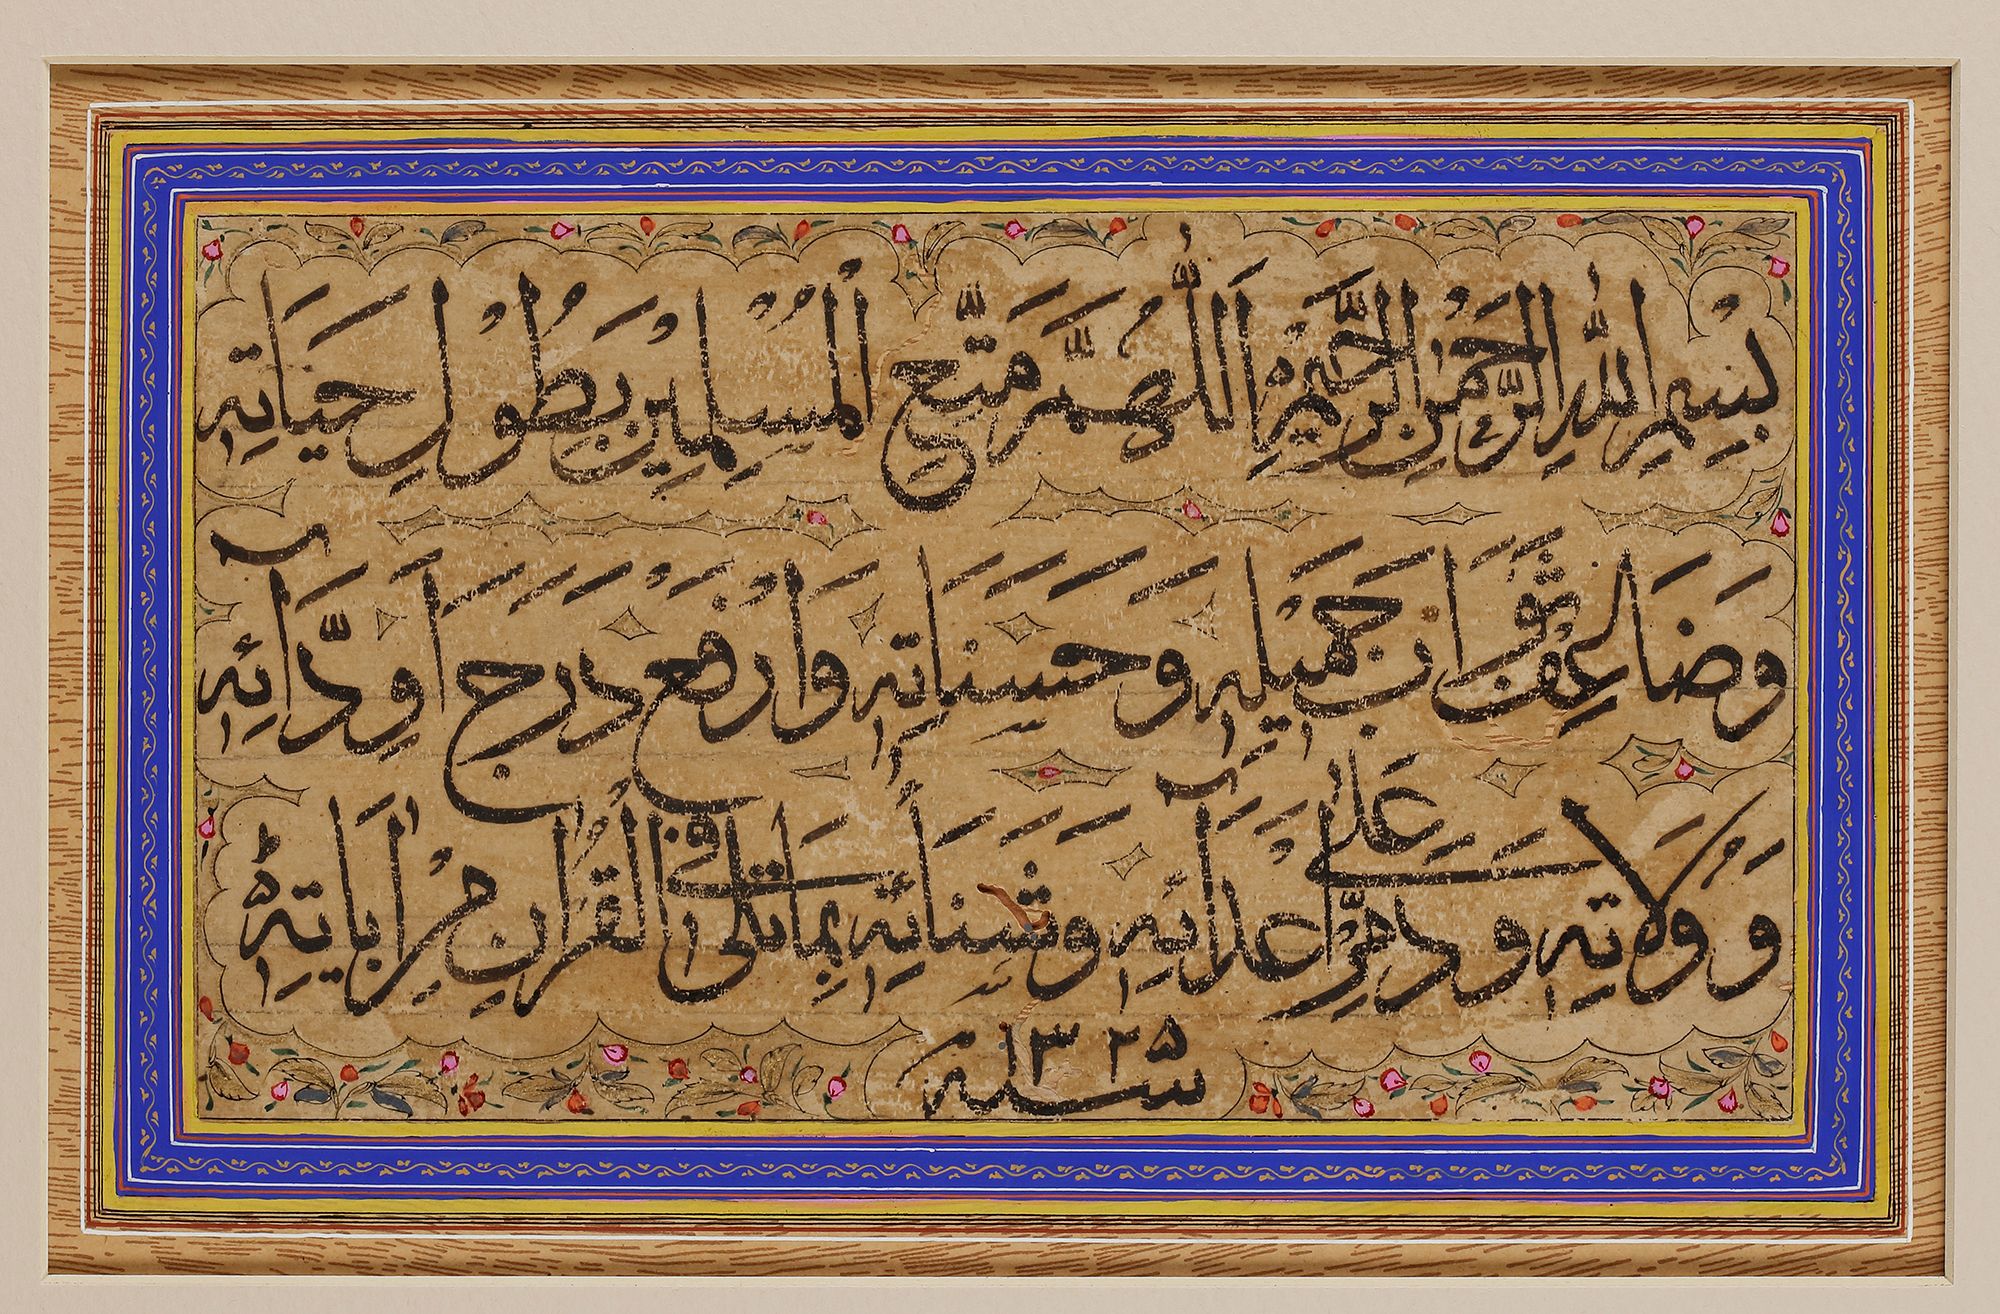 بِسْمِ اللهِ الرَّحْمٰنِ الرَّحِيْمِ اَللّٰهُمَّ مَتِّعِ الْمُسْلِمِيْنَ بِطُوْلِ حَيَاتِهِ
وَضَاعِفْ ثَوَابَ جَمِيْلِهِ وَحَسَنَاتِهِ وَارْفَعْ دَرَجَ اَوِدَّآئِهِ
وَوُلَاتِهِ وَدَمِّرْ عَلٰى اَعْدَآئِهِ وَشُنَأئِهِ بِمَا تُلِىَ فِى الْقُرْاٰنِ مِنْ اٰيَاتِهِ
سنة ١٣٢٥